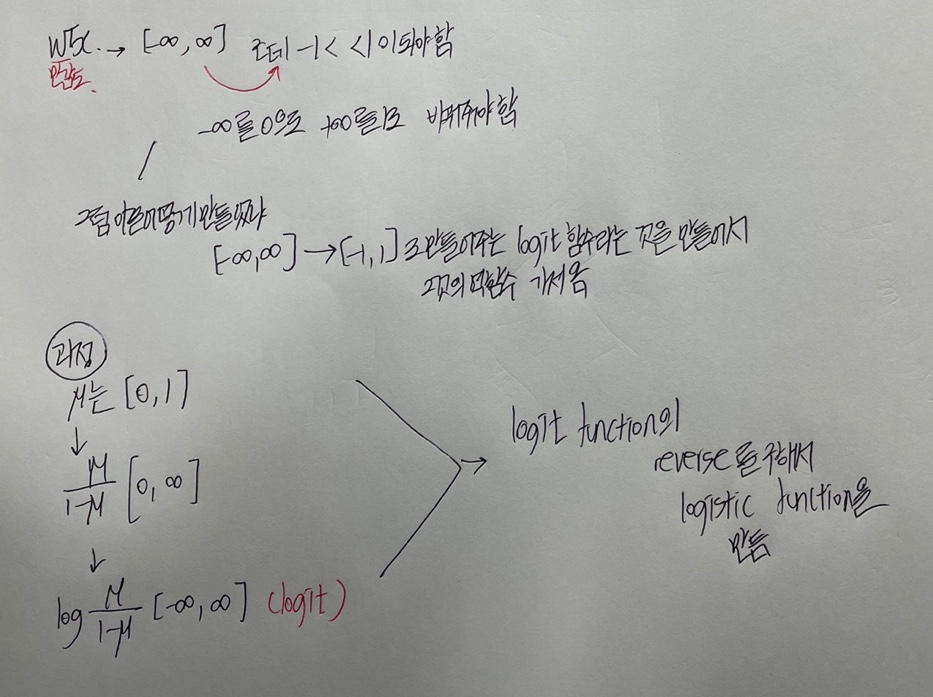 wᵀx. → [-∞, ∞] -1< <1이 되야함
-∞를 0으로 +∞를 1로 바꿔줘야함
그럼 이를 어떻게 만들었냐
[-∞,∞] → [-1, 1]로 만들어주는 logit 함수라는 것을 만들어서
그것의 역함수 가져옴
과정
μ는 [0, 1]
↓
μ/1-μ [0, ∞]
↓
log μ/1-μ [-∞, ∞] (logit)
→ logit function의
reverse를 구해서
logistic function을
만듬